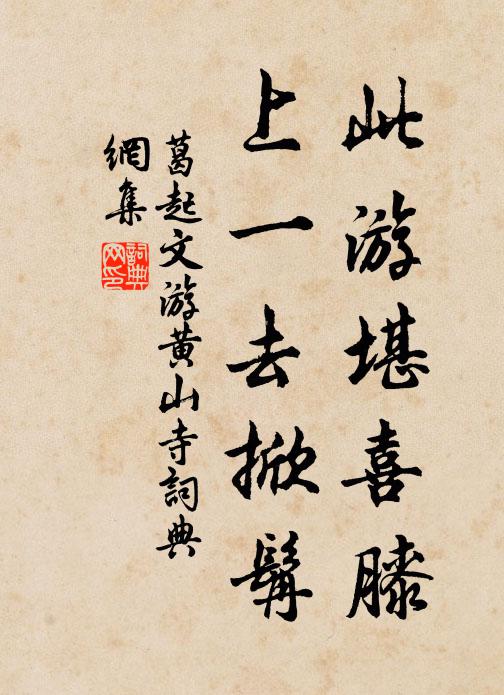 此游堪喜膝
上一去掀髯
葛起文游黄山寺詞典
網集
詞典
网印